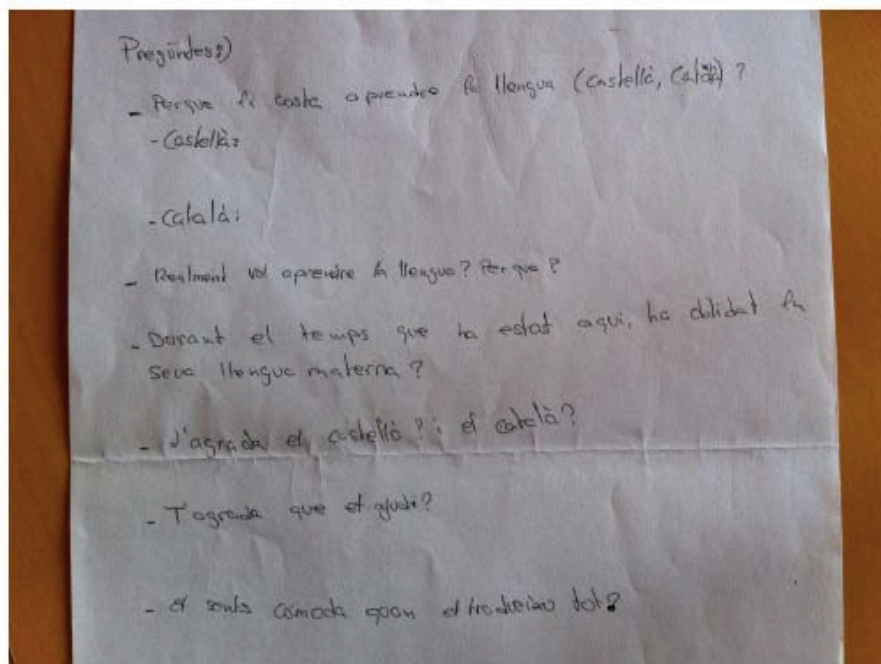 Pregúntes:)
- Perque li costa aprendre la llengua (castellà, Català) ?
- Castellà:
- Català:
- Realment vol aprendre la llengua? Per que?
- Durant el temps que ha estat aqui, ha olvidat la
seva llengua materna?
- T'agrada el castellà? i el català?
- T'agrada que et ajudi?
- et sents comoda quan et tradueixo tot?